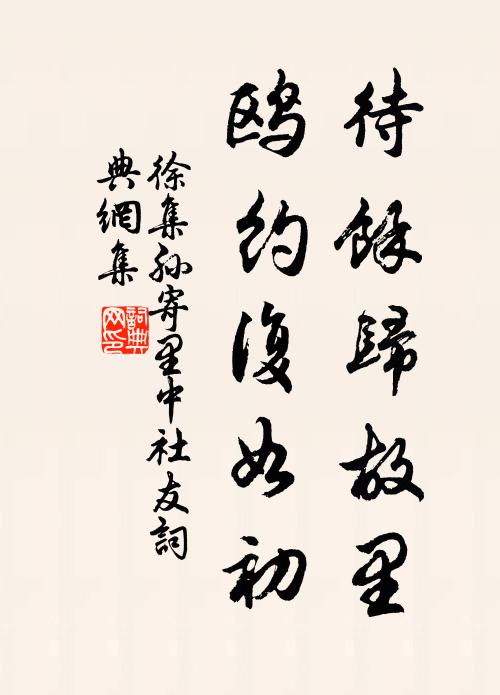 待餘歸故里
鸥約復如初
徐集孙寄里中社友詞
典網集
詞典
网印